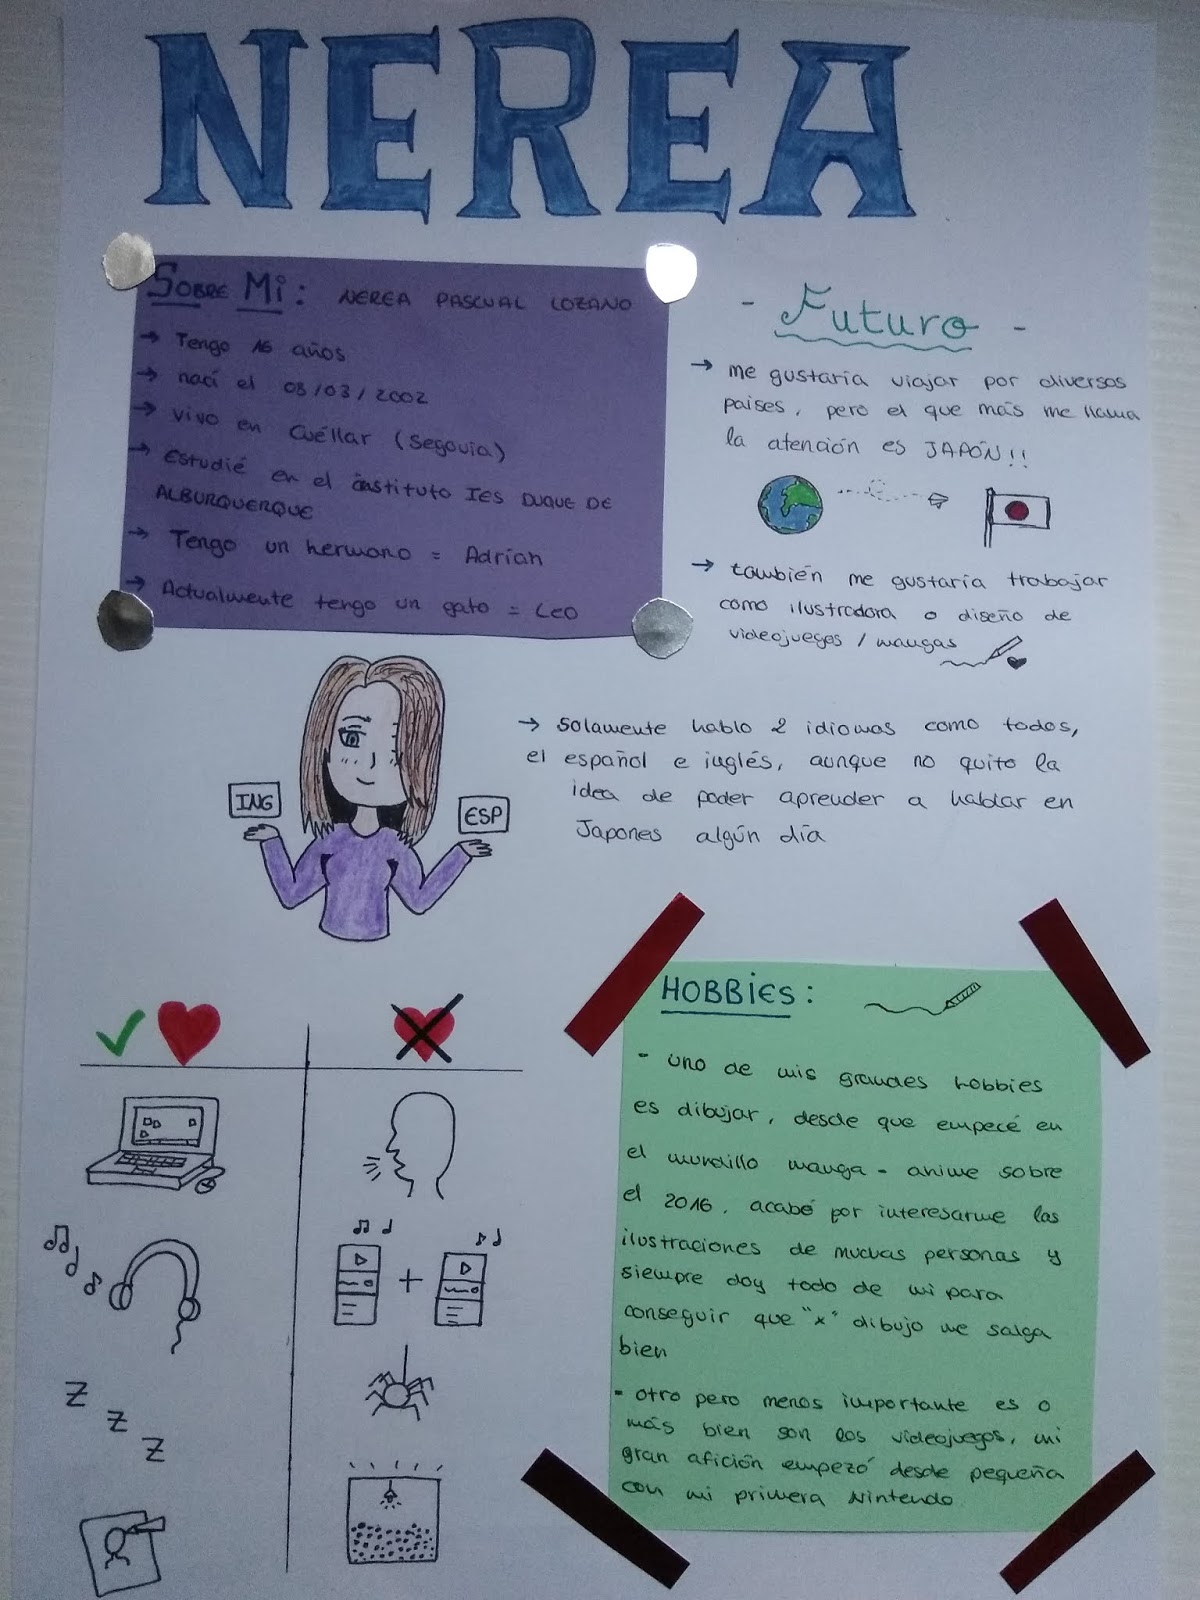 NEREA
SOBRE Mi: NEREA PASCUAL LOZANO
→ Tengo 16 años
→ nací el 03/03/2002
→ vivo en Cuéllar (Segovia)
→ Estudié en el instituto IES DUQUE DE
ALBURQUERQUE
→ Tengo un hermano = Adrián
→ Actualmente tengo un gato = Leo
- Futuro -
→ me gustaría viajar por diversos
países, pero el que más me llama
la atención es JAPÓN!!
→ también me gustaría trabajar
como ilustradora o diseño de
videojueges / mangas
→ Solamente hablo 2 idiomas como todos,
el español e inglés, aunque no quito la
idea de poder aprender a hablar en
Japones algún día
ING
ESP
HOBBiES:
- uno de mis grandes hobbies
es dibujar, desde que empecé en
el mundillo manga - anime sobre
el 2016, acabé por interesarme las
ilustraciones de muchas personas y
siempre doy todo de mi para
conseguir que "x" dibujo me salga
bien
- otro pero menos importante es o
más bien son los videojuegos, mi
gran afición empezó desde pequeña
con mi primera Nintendo
Z
Z
Z